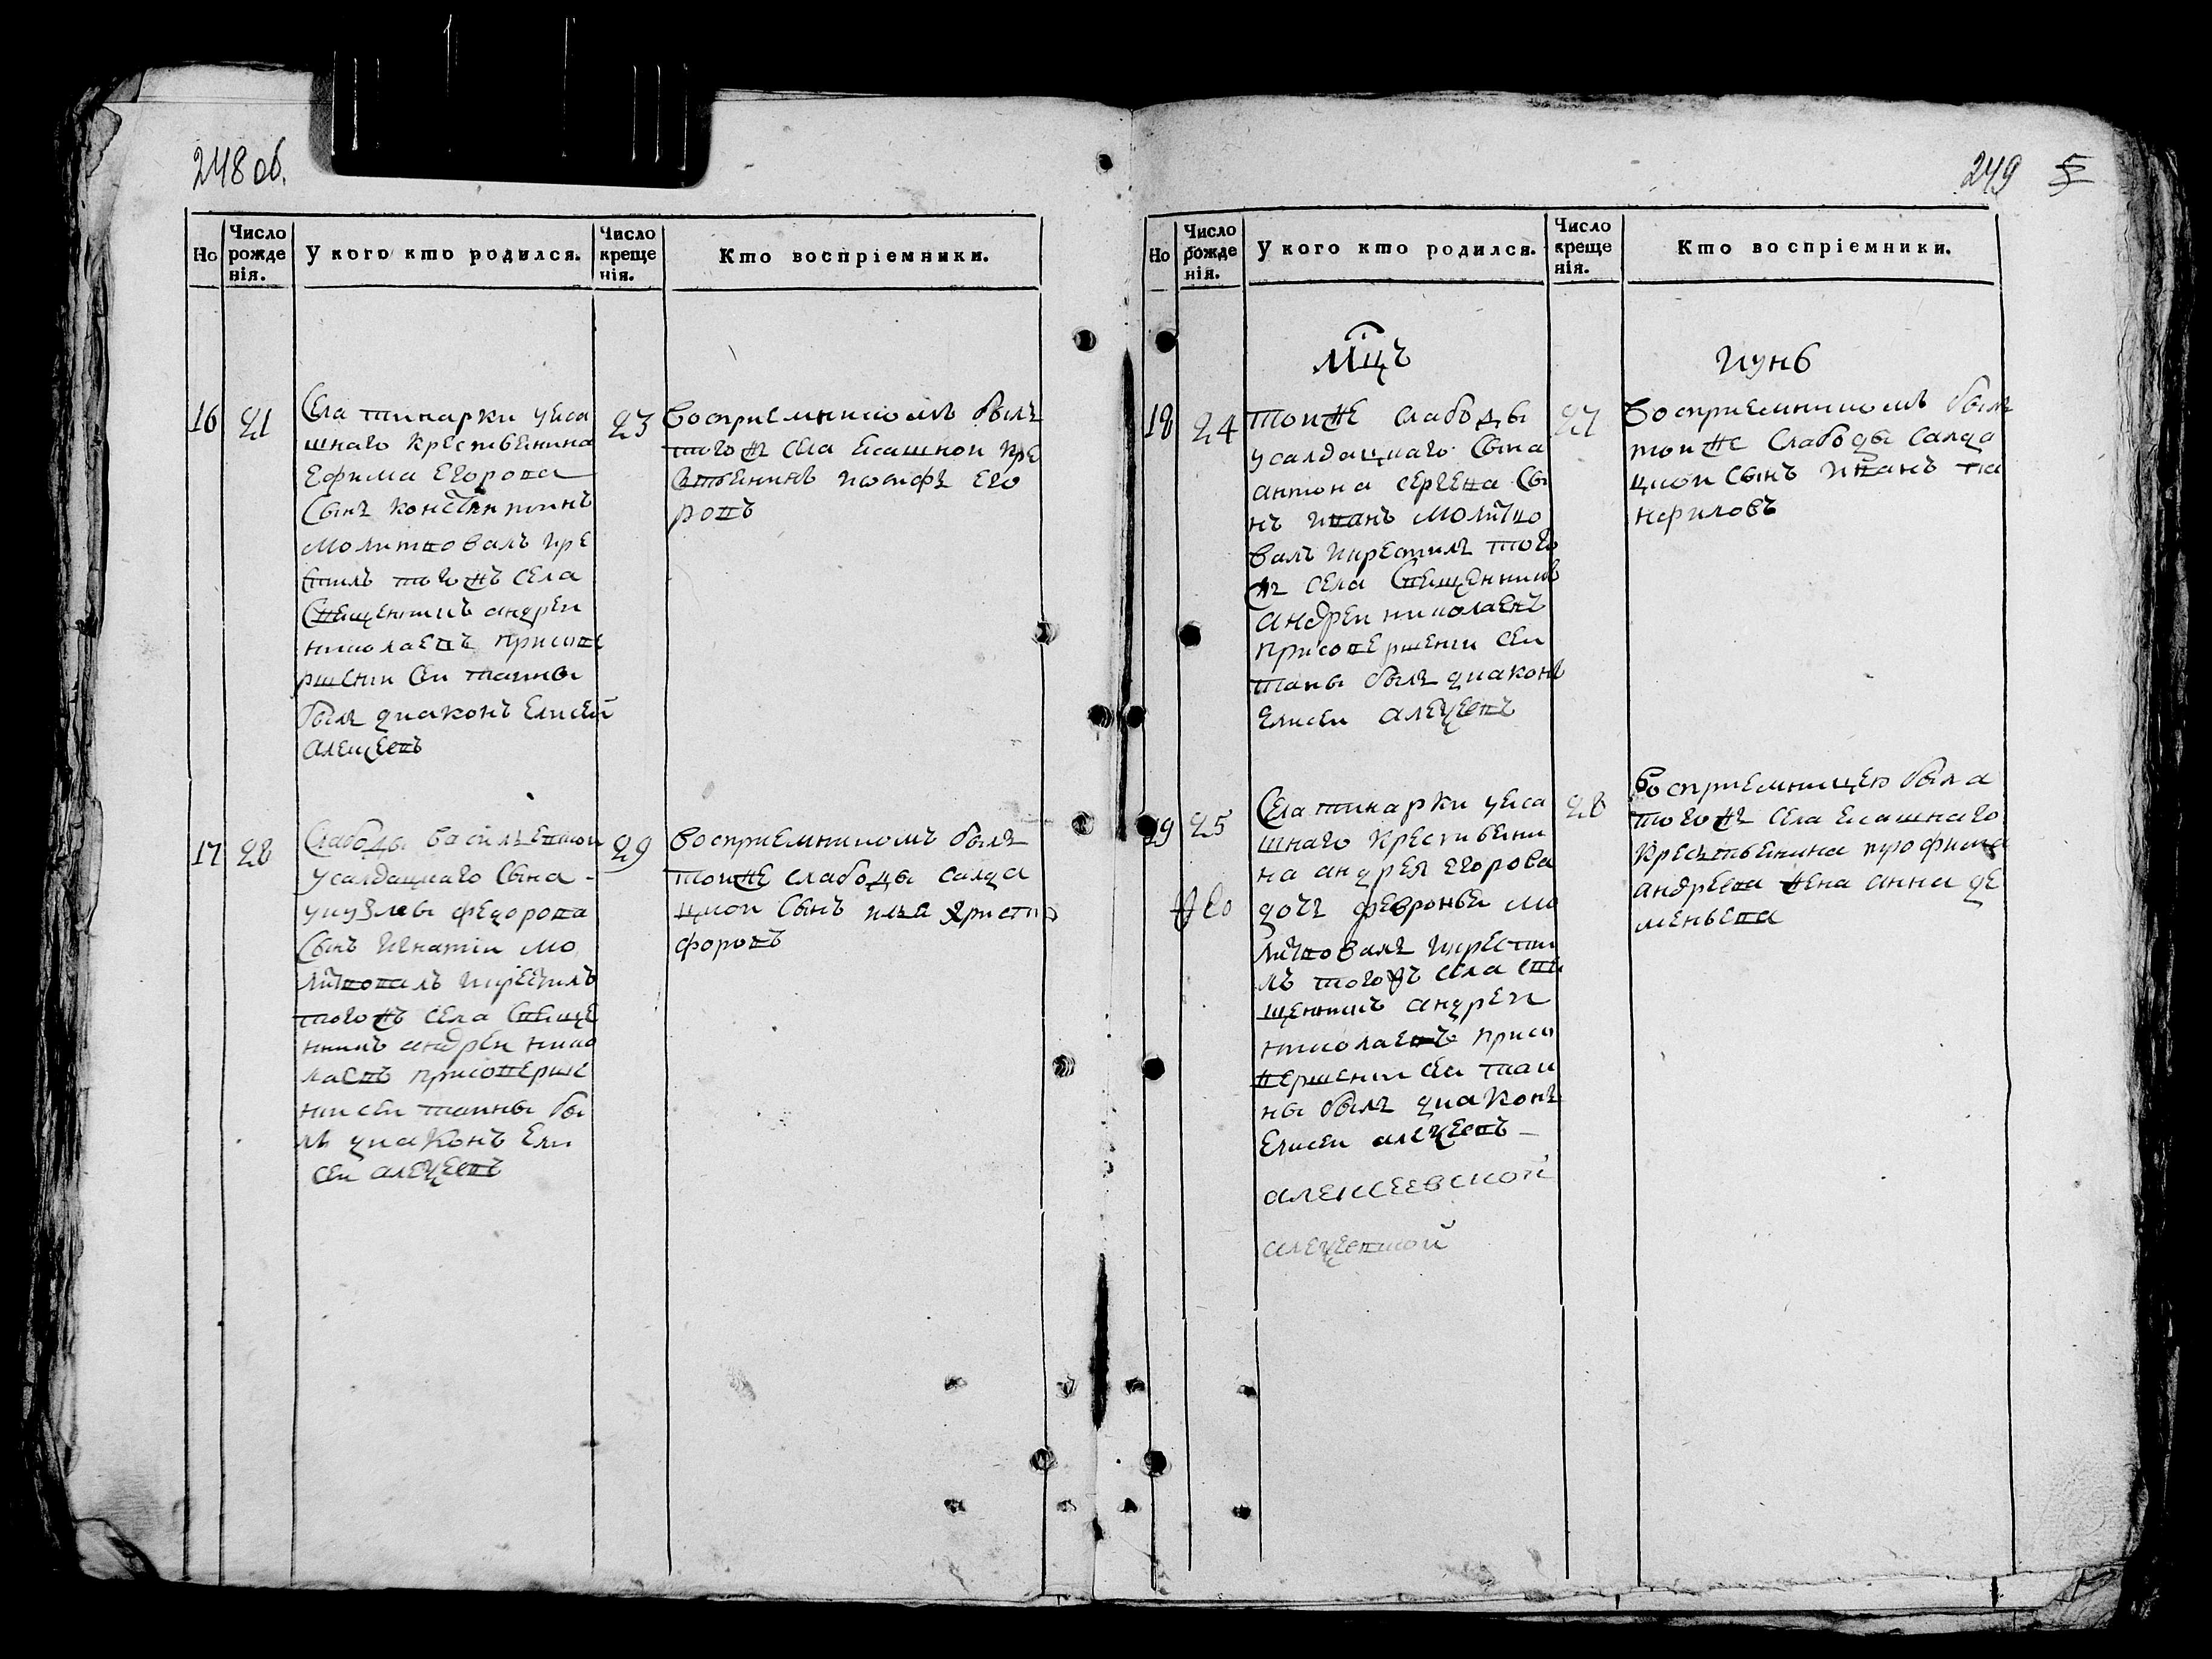 248 об.
Но
Число рожденія.
У кого кто родился.
Число крещенія.
Кто воспріемники.
16
21
Села тинарки уяса
шнаго крестьенина
Ефима Егорова
Сынъ констянтинъ
молитвовалъ икре
стилъ тогожъ села
Священникъ андреи
николаевъ присове
ршении сеи таины
былъ диаконъ Елисей
алеѯеевъ
23
восприемникомъ былъ
тогожъ села ясашнои кре
стьенинъ иосифъ его
ровъ
17
28
Слабоды василъевскои
усалдацкаго сына
федорова
сынъ игнатіи мо
литвовалъ икрестилъ
тогожъ села свяще
нникъ андреи нико
лаевъ присоверше
нии сеи таины бы
лъ диаконъ Ели
сеи алеѯеевъ
29
восприемникомъ былъ
тоиже слабоды салда
цкои сынъ илья христо
форовъ
249 5
Но
Число рожденія.
У кого кто родился.
Число крещенія.
Кто воспріемники.
Мцъ
июнь
18
24
тоиже слабоды
усалдацкаго сына
антона сергева сы
нъ иванъ молитво
валъ икрестилъ того
жъ села священникъ
андреи николаевъ
присовершении сеи
таины былъ диаконъ
Елисеи алеѯеевъ
27
восприемникомъ былъ
тоиже слабоды салда
цкои сынъ иванъ па
нфиловъ
19
25
Села тинарки уяса
шнаго крестьени
на андрея егорова
дочь февронья мо
литвовалъ икрести
лъ тогожъ села свя
щенникъ андреи
николаевъ присо
вершении сеи таи
ны былъ диаконъ
Елисеи алеѯеевъ
алексеевской
алеѯеевской
28
восприемницею была
тогожъ села ясашнаго
крестьенина трофима
андреева жена анна де
меньева